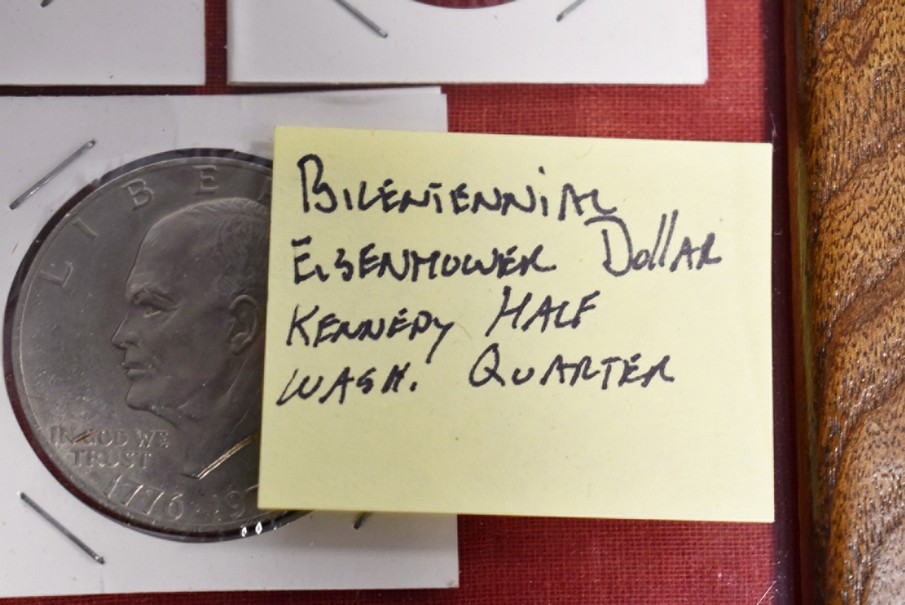 LIBE
IN GOD WE
TRUST
1776 · 197
BICENTENNIAL
EISENHOWER DOLLAR
KENNEDY HALF
WASH. QUARTER